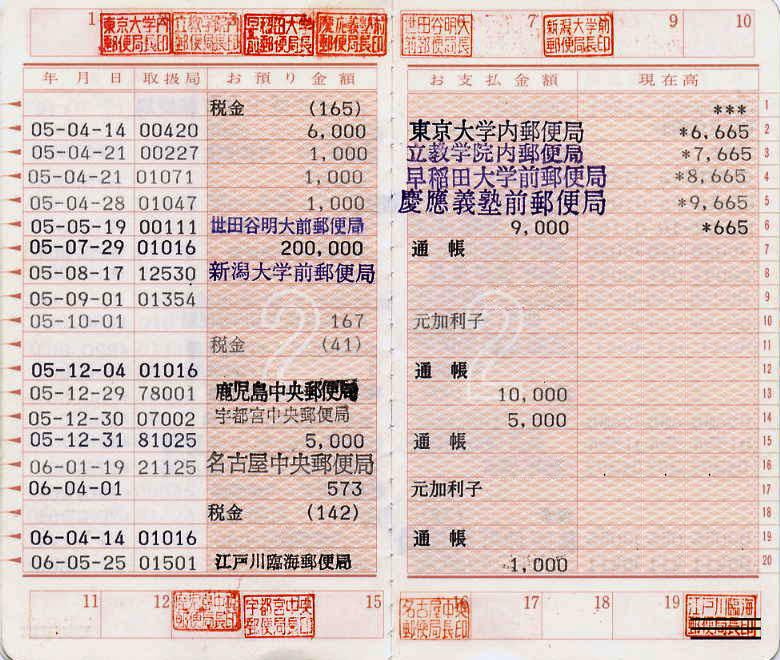 1 東京大学内郵便局長印 立教学院内郵便局長印 早稲田大学前郵便局長印 慶應義塾前郵便局長印 世田谷明大前郵便局長印 7 新潟大学前郵便局長印 9 10
年月日 取扱局 お預り金額 お支払金額 現在高
税金 (165) *** 1
05-04-14 00420 6,000 東京大学内郵便局 *6,665 2
05-04-21 00227 1,000 立教学院内郵便局 *7,665 3
05-04-21 01071 1,000 早稲田大学前郵便局 *8,665 4
05-04-28 01047 1,000 慶應義塾前郵便局 *9,665 5
05-05-19 00111 世田谷明大前郵便局 9,000 *665 6
05-07-29 01016 200,000 通帳 7
05-08-17 12530 新潟大学前郵便局 8
05-09-01 01354 9
05-10-01 167 元加利子 10
税金 (41) 11
05-12-04 01016 通帳 12
05-12-29 78001 鹿児島中央郵便局 10,000 13
05-12-30 07002 宇都宮中央郵便局 5,000 14
05-12-31 81025 5,000 通帳 15
06-01-19 21125 名古屋中央郵便局 16
06-04-01 573 元加利子 17
税金 (142) 18
06-04-14 01016 通帳 19
06-05-25 01501 江戸川臨海郵便局 1,000 20
11 12 鹿児島中央郵便局長印 宇都宮中央郵便局長印 15 名古屋中央郵便局長印 17 18 19 江戸川臨海郵便局長印